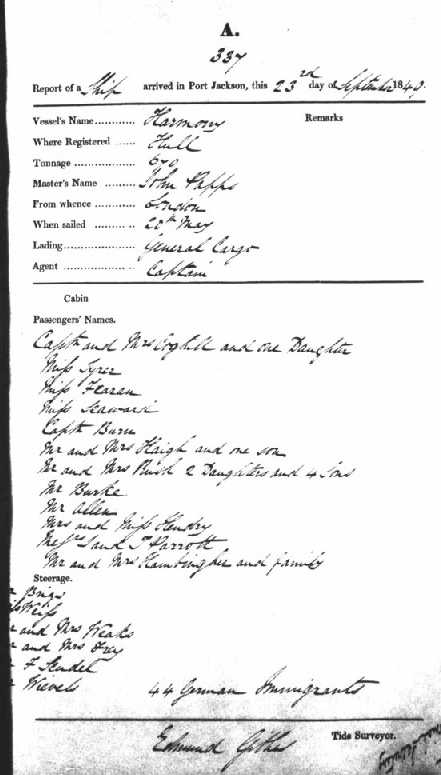 A.
337
Report of a Ship arrived in Port Jackson, this 23rd day of September 1849.
Vessel's Name ........... Harmony Remarks
Where Registered ...... Hull
Tonnage ................ 670
Master's Name ......... John Papps
From whence ............ London
When sailed ............ 20th May
Lading .................. General Cargo
Agent .................... Captain
Cabin
Passengers' Names.
Captn and Mrs Coghill and one Daughter
Miss Tyrer
Miss Fearan
Miss Seaward
Captn Burn
Mr and Mrs Haigh and one son
Mr and Mrs Bush 2 Daughters and 4 Sons
Mr Burke
Mr Allen
Mrs and Miss Hendry
and Parrott
Mr and Mrs and family
Steerage.
Weiss
and Mrs Weaks
and Mrs Frey
F Stendel
Wievels 44 German Immigrants
Edmund Tide Surveyor.